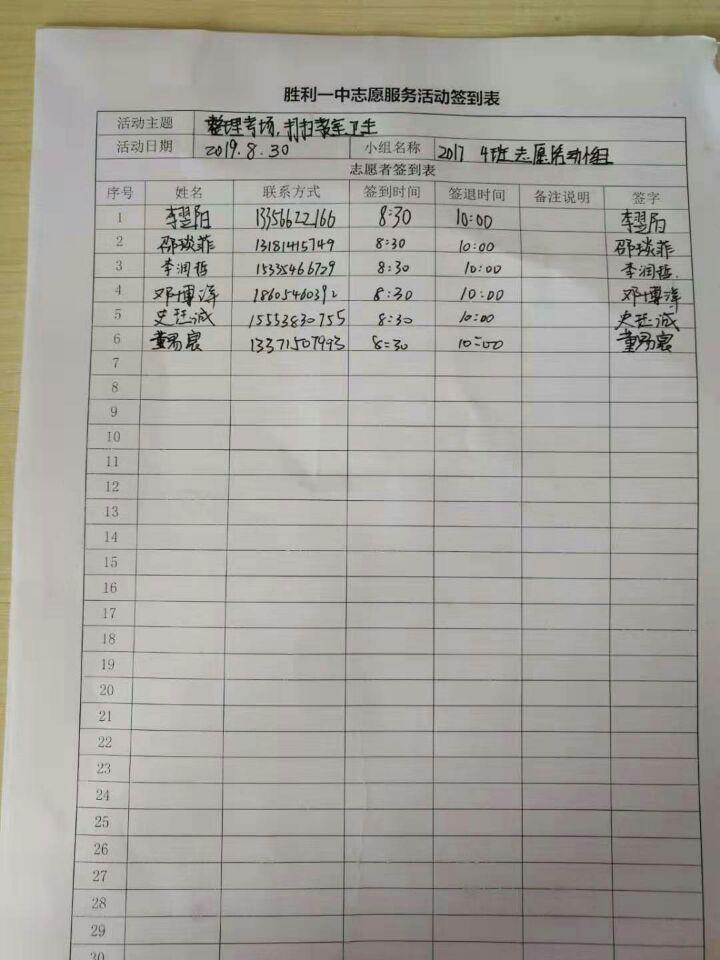 胜利一中志愿服务活动签到表
活动主题 整理考场,打扫教室卫生
活动日期 2019.8.30 小组名称 2017 4班志愿活动小组
志愿者签到表
序号 姓名 联系方式 签到时间 签退时间 备注说明 签字
1 李翌阳 13356622166 8:30 10:00 李翌阳
2 邵琰菲 13181415749 8:30 10:00 邵琰菲
3 李润哲 15335466729 8:30 10:00 李润哲.
4 邓博洋 18605460392 8:30 10:00 邓博洋
5 史廷诚 15553830755 8:30 10:00 史廷诚
6 董易宸 13371507993 8:30 10:00 董易宸
7
8
9
10
11
12
13
14
15
16
17
18
19
20
21
22
23
24
25
26
27
28
29
30